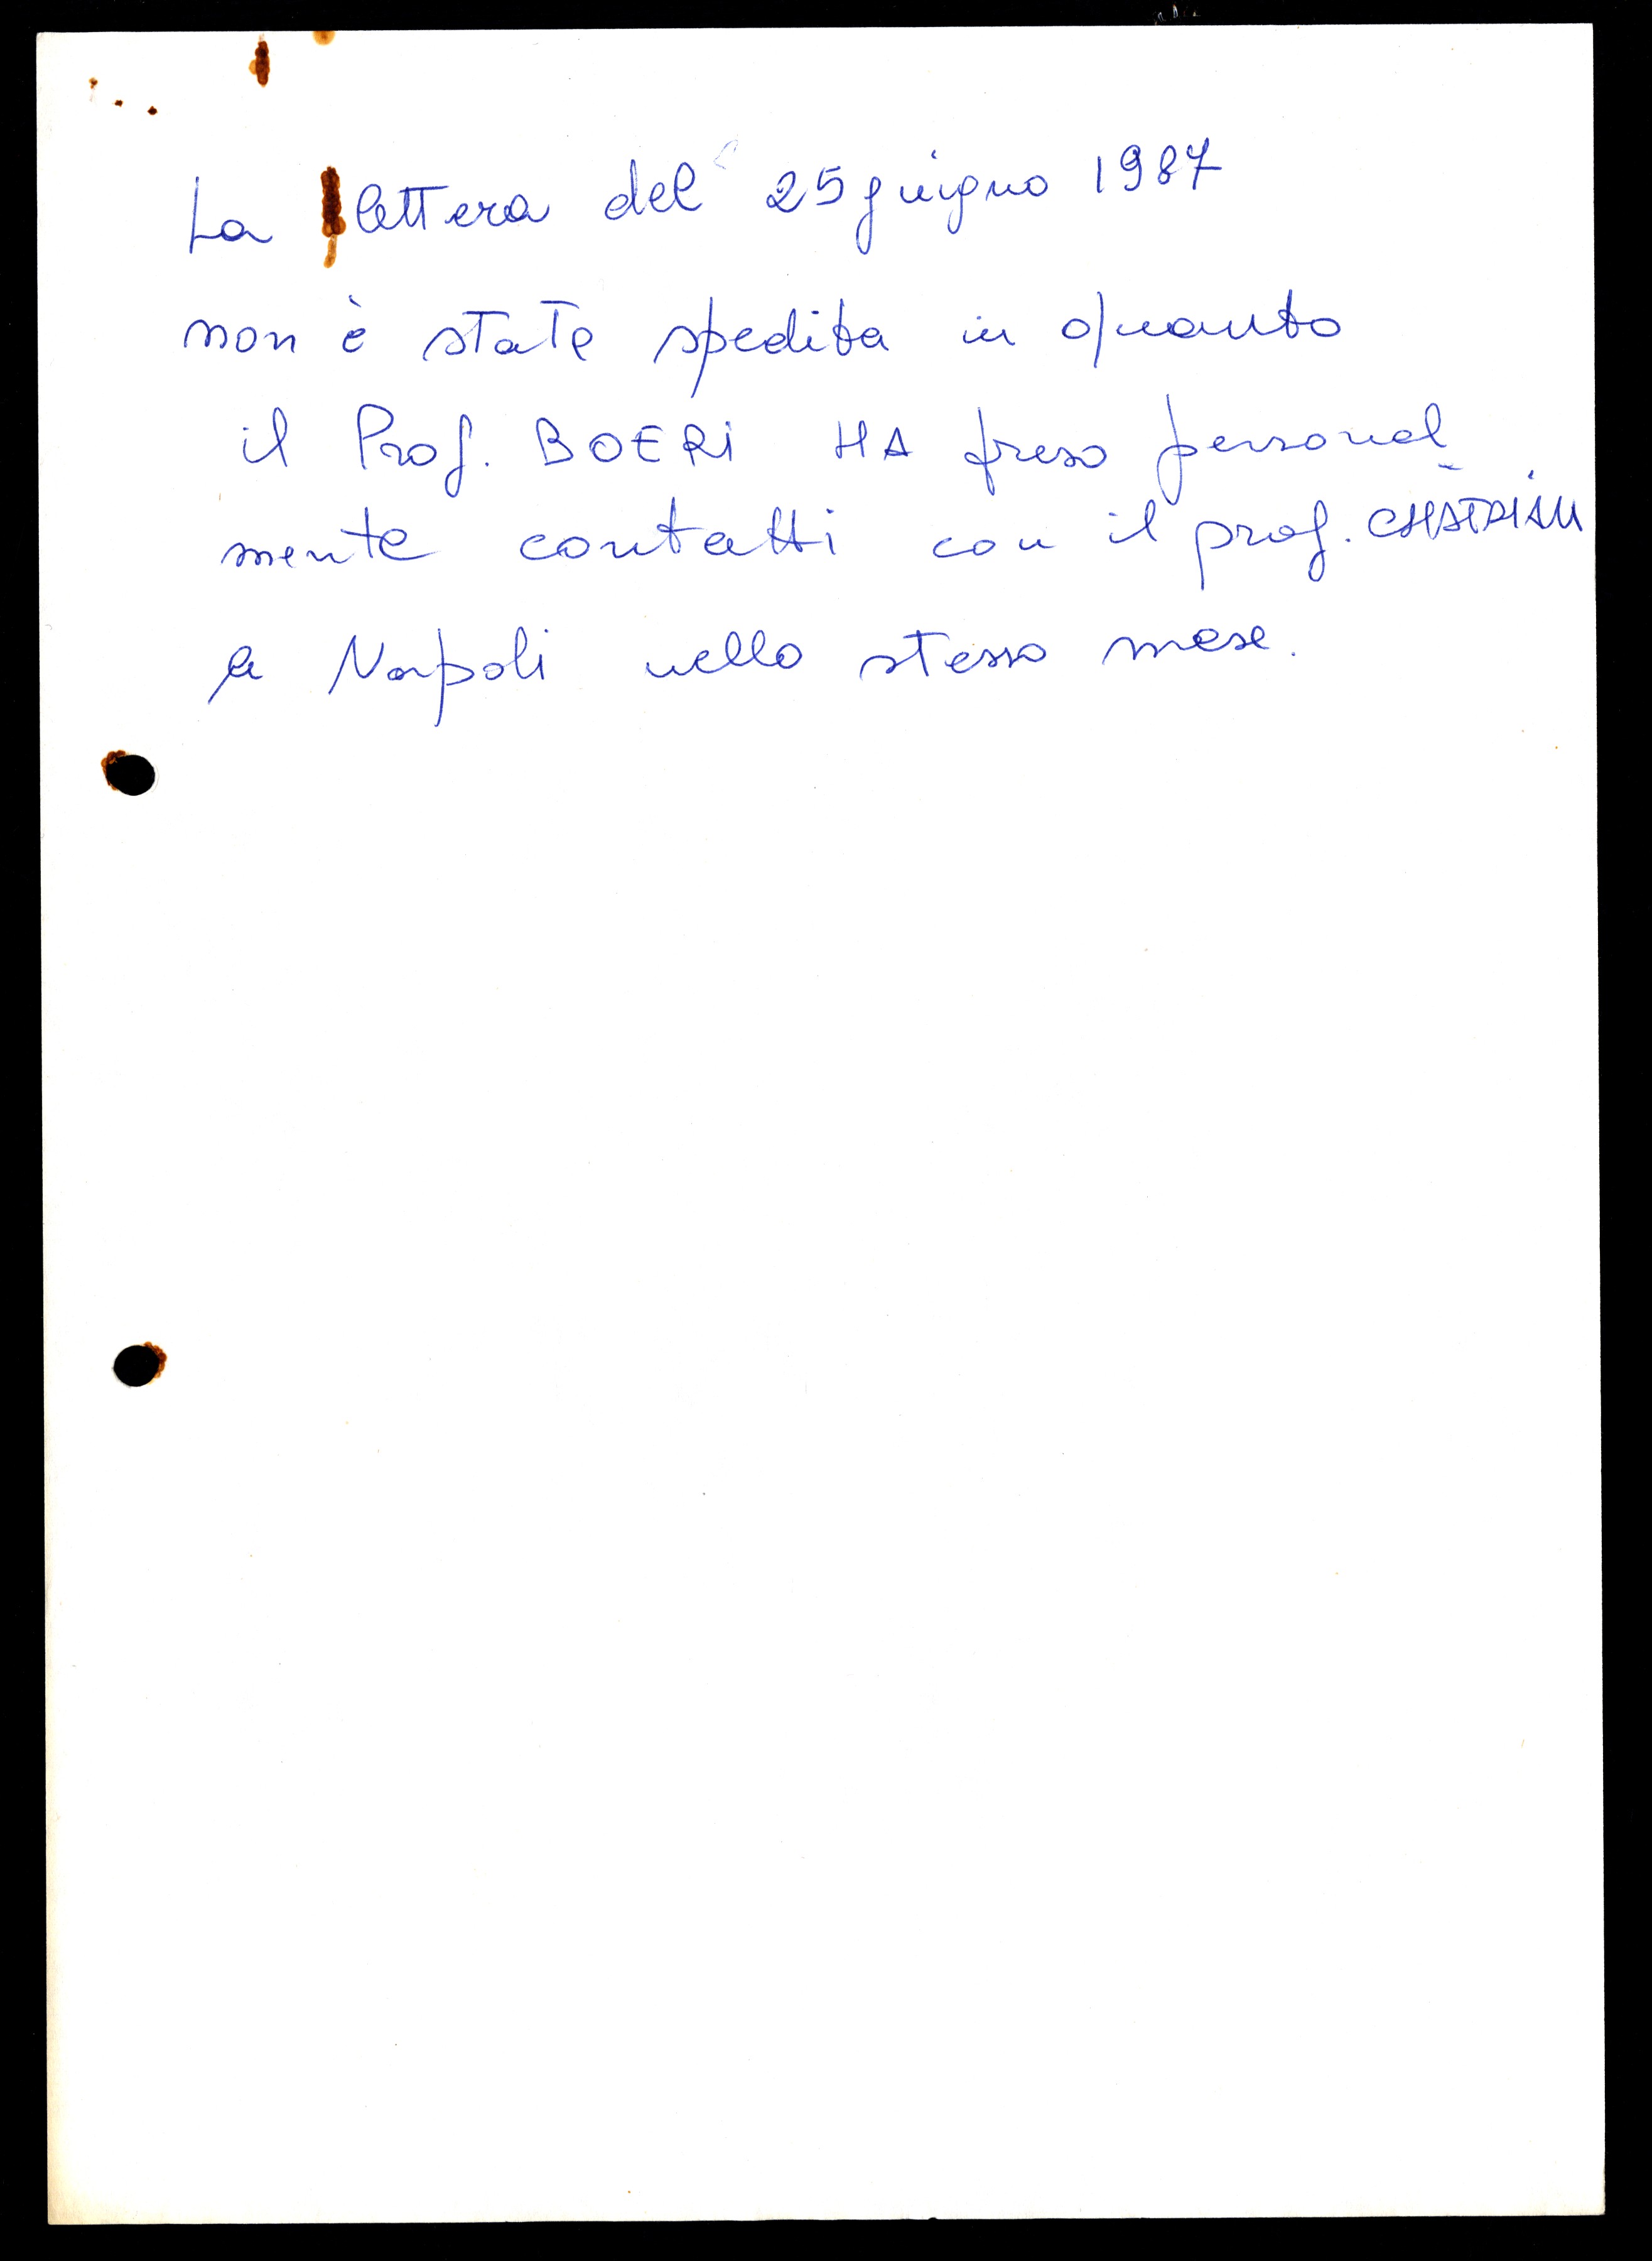 La lettera del 25 giugno 1987
non è stata spedita in quanto
il Prof. BOERI HA preso personal_
mente contatti con il prof. CHATRIAN
a Napoli nello stesso mese.